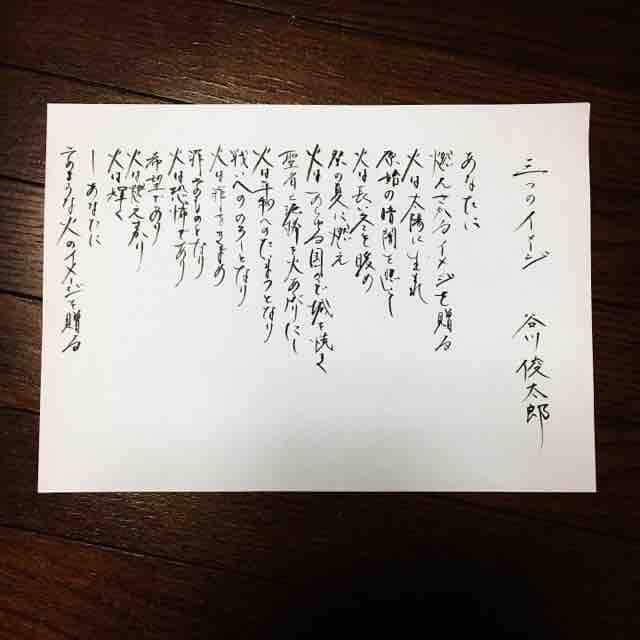 三つのイメージ　谷川俊太郎
あなたに
燃えさかるイメージを贈る
火は太陽に生まれ
原始の暗闇を照らし
火は長い冬を暖め
祭の夏に燃え
火はあらゆる国々で城を焼き
聖者と　を火あぶりにし
火は平和へのたいまつとなり
戦いへののろしとなり
火は罪をきよめ
罪そのものとなり
火は恐怖であり
希望であり
火は燃えさかり
火は輝く
―あなたに
そのような火のイメージを贈る